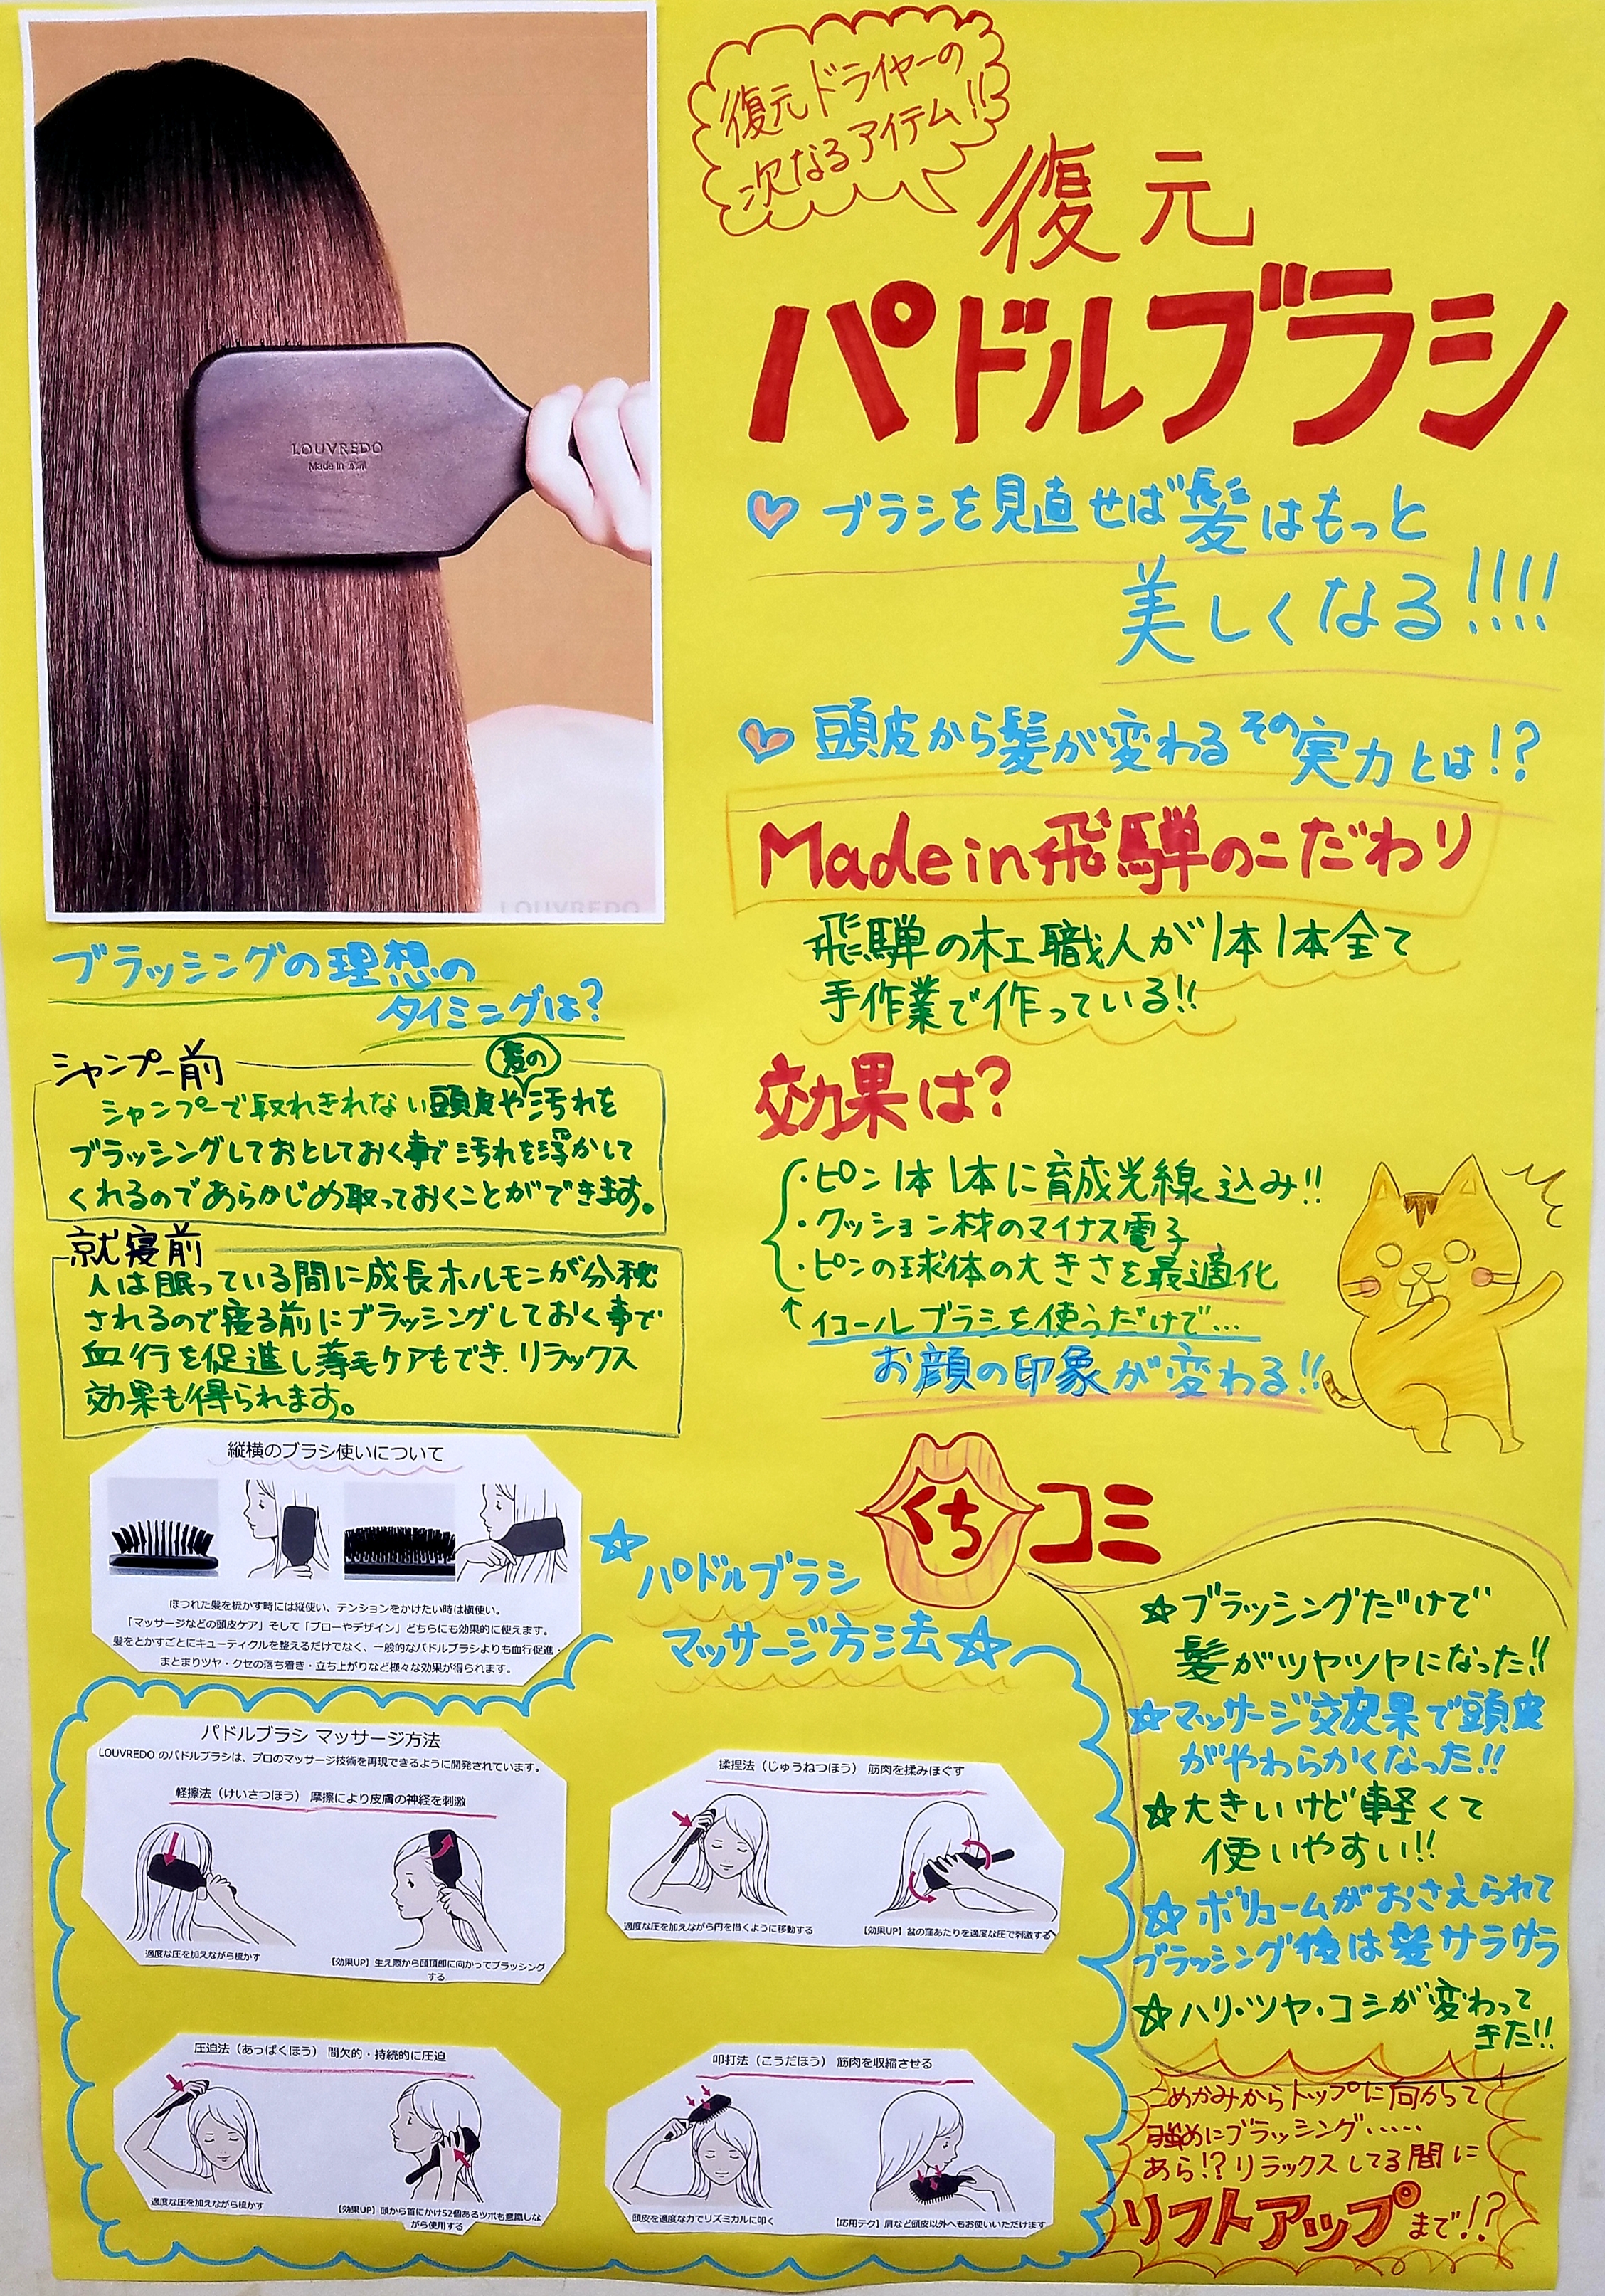 復元ドライヤーの
次なるアイテム!!
復元
パドルブラシ
LOUVREDO
Made in 飛騨
LOUVREDO
ブラシを見直せば髪はもっと
美しくなる!!!!
頭皮から髪が変わるその実力とは!?
Made in 飛騨のこだわり
飛騨の木工職人が1本1本全て
手作業で作っている!!
効果は?
・ピン1本1本に育成光線込み!!
・クッション材のマイナス電子
・ピンの球体の大きさを最適化
↑イコールブラシを使うだけで…
お顔の印象が変わる!!
ブラッシングの理想の
タイミングは?
シャンプー前
髪の
シャンプーで取れきれない頭皮や汚れを
ブラッシングしておとしておく事で汚れを浮かして
くれるのであらかじめ取っておくことができます。
就寝前
人は眠っている間に成長ホルモンが分秘
されるので寝る前にブラッシングしておく事で
血行を促進し薄毛ケアもでき、リラックス
効果も得られます。
縦横のブラシ使いについて
ほつれた髪を梳かす時には縦使い、テンションをかけたい時は横使い。
「マッサージなどの頭皮ケア」そして「ブローやデザイン」どちらにも効果的に使えます。
髪をとかすごとにキューティクルを整えるだけでなく、一般的なパドルブラシよりも血行促進・
まとまりツヤ・クセの落ち着き・立ち上がりなど様々な効果が得られます。
☆パドルブラシ
マッサージ方法☆
パドルブラシ マッサージ方法
LOUVREDO のパドルブラシは、プロのマッサージ技術を再現できるように開発されています。
軽擦法（けいさつほう） 摩擦により皮膚の神経を刺激
適度な圧を加えながら梳かす
【効果UP】生え際から頭頂部に向かってブラッシング
する
揉捏法（じゅうねつほう） 筋肉を揉みほぐす
適度な圧を加えながら円を描くように移動する
【効果UP】盆の窪あたりを適度な圧で刺激する
圧迫法（あっぱくほう） 間欠的・持続的に圧迫
適度な圧を加えながら梳かす
【効果UP】頭から首にかけ52個あるツボも意識しな
がら使用する
叩打法（こうだほう） 筋肉を収縮させる
頭皮を適度な力でリズミカルに叩く
【応用テク】肩など頭皮以外へもお使いいただけます
くちコミ
☆ブラッシングだけで
髪がツヤツヤになった!!
☆マッサージ効果で頭皮
がやわらかくなった!!
☆大きいけど軽くて
使いやすい!!
☆ボリュームがおさえられて
ブラッシング後は髪サラサラ
☆ハリ・ツヤ・コシが変わって
きた!!
こめかみからトップに向かって
強めにブラッシング……
あら!?リラックスしてる間に
リフトアップまで!?